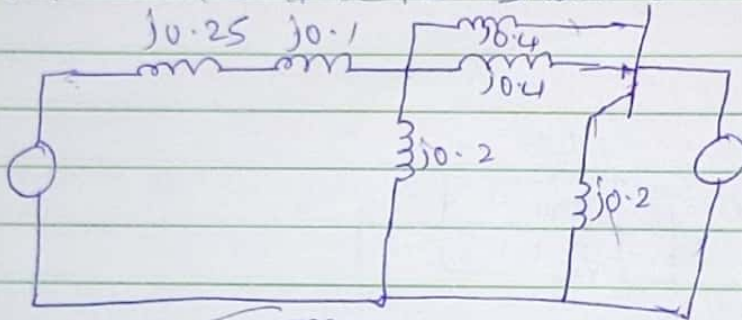 j0.25 j0.1 j0.4
j0.4
j0.2
j0.2